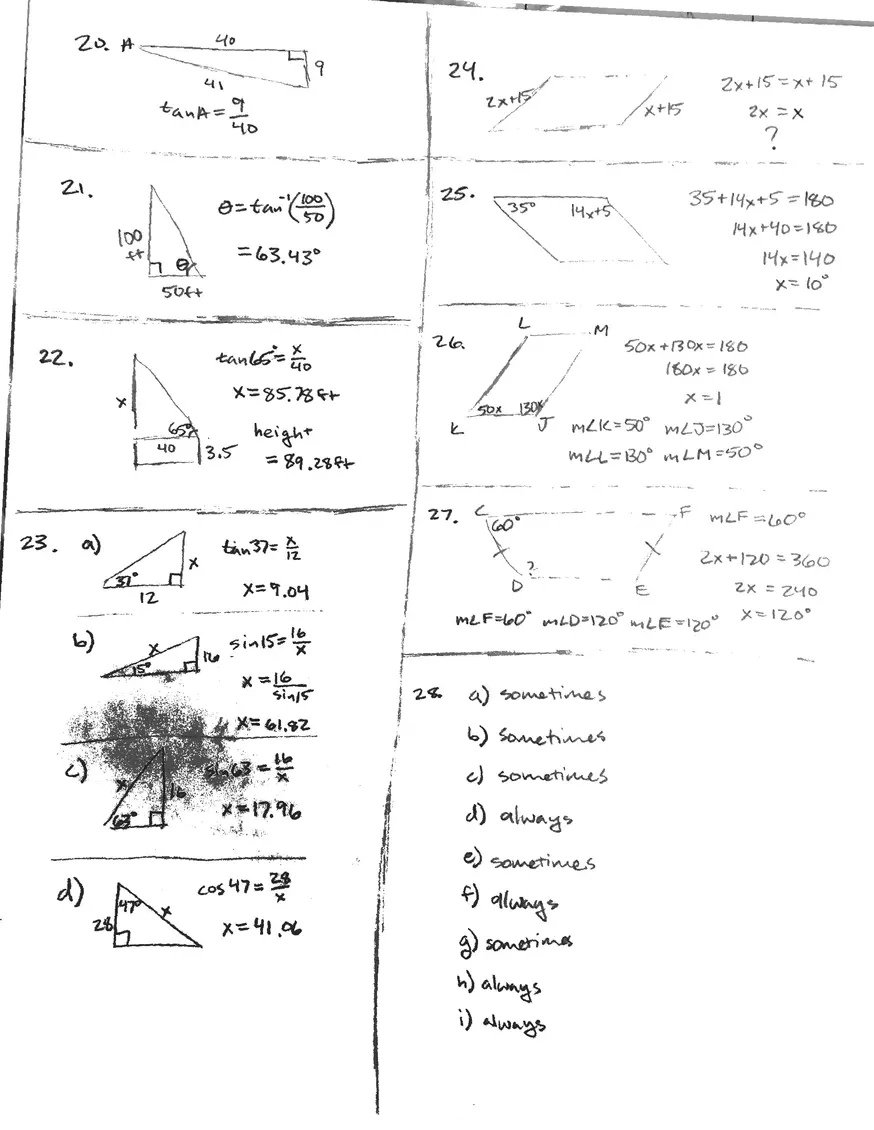 20. A
40
9
41
tanA = 9/40
21.
100 ft
θ
50ft
θ = tan⁻¹(100/50)
= 63.43°
22.
x
65°
40
3.5
tan65° = x/40
x = 85.78 ft
height
= 89.28ft
23. a)
37°
12
x
tan37 = x/12
x = 9.04
b)
x
15°
16
sin15 = 16/x
x = 16/sin15
x = 61.82
c)
x
16
63°
sin63 = 16/x
x = 17.96
d)
47°
28
x
cos47 = 28/x
x = 41.06
24.
2x+15
x+15
2x+15 = x+15
2x = x
?
25.
35°
14x+5
35+14x+5 = 180
14x+40 = 180
14x = 140
x = 10°
26.
L
M
50x
130x
K
J
50x+130x = 180
180x = 180
x = 1
m∠K = 50° m∠J = 130°
m∠L = 130° m∠M = 50°
27.
C
F
60°
D
?
E
m∠F = 60°
2x+120 = 360
2x = 240
x = 120°
m∠F = 60° m∠D = 120° m∠E = 120°
28. a) sometimes
b) sometimes
c) sometimes
d) always
e) sometimes
f) always
g) sometimes
h) always
i) always